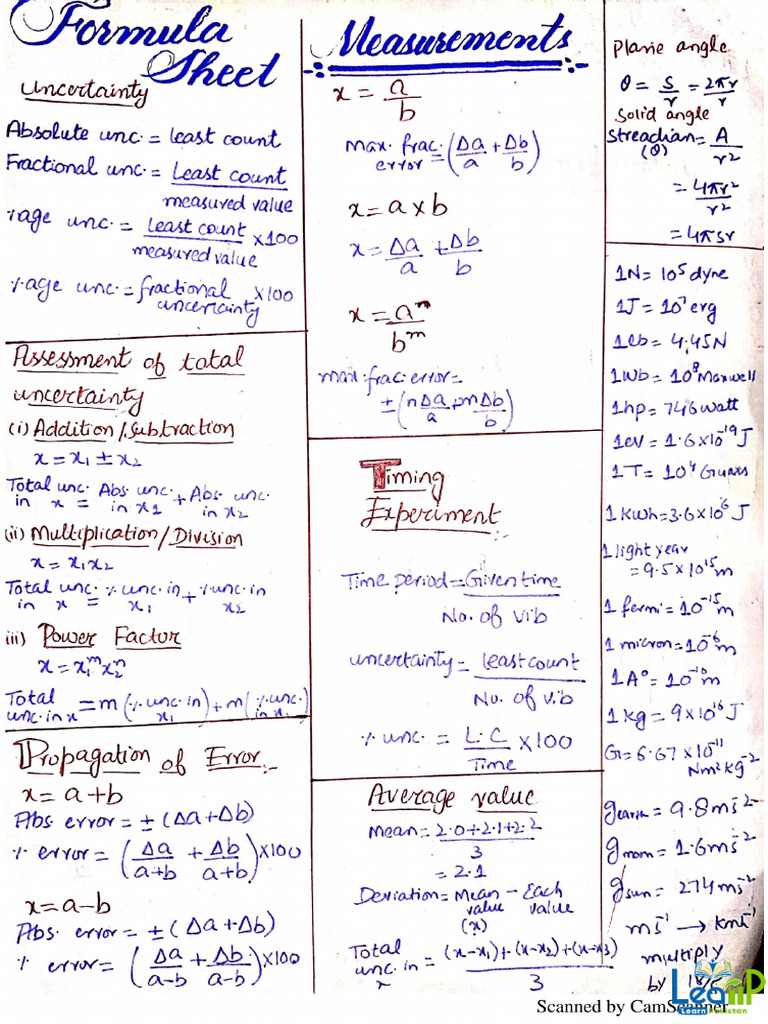 Formula
Sheet
Uncertainty
Absolute unc. = least count
Fractional unc. = Least count / measured value
%age unc. = least count / measured value × 100
%age unc. = fractional uncertainty × 100
Assessment of total
uncertainty
(i) Addition/Subtraction
x = x₁ ± x₂
Total unc. in x = Abs unc. in x₁ + Abs unc. in x₂
(ii) Multiplication/Division
x = x₁x₂
Total unc. in x = % unc. in x₁ + % unc. in x₂
iii) Power Factor
x = x₁ᵐ x₂ⁿ
Total unc. in x = m (% unc. in x₁) + m (% unc. in x₂)
Propagation of Error:-
x = a+b
Abs error = ± (Δa + Δb)
% error = (Δa/a+b + Δb/a+b) × 100
x = a-b
Abs. error = ± (Δa + Δb)
% error = (Δa/a-b + Δb/a-b) × 100
Measurements
x = a/b
max. frac. error = (Δa/a + Δb/b)
x = a × b
x = Δa/a + Δb/b
x = aⁿ/bᵐ
max. frac. error =
± (nΔa/a + mΔb/b)
Timing
Experiment
Time period = Given time / No. of vib
uncertainty = least count / No. of vib
% unc. = L.C / Time × 100
Average value
Mean = 2.0+2.1+2.2 / 3
= 2.1
Deviation = Mean value (x) - Each value
Total unc. in x = (x-x₁)+(x-x₂)+(x-x3) / 3
Plane angle
θ = S/r = 2πr/r
Solid angle
Streadian (θ) = A/r²
= 4πr²/r²
= 4πsr
1N = 10⁵ dyne
1J = 10⁷ erg
1lb = 4.45N
1Wb = 10⁸ Maxwell
1hp = 746 watt
1ev = 1.6×10⁻¹⁹ J
1T = 10⁴ Guass
1 Kwh = 3.6×10⁻⁶ J
1 light year
= 9.5×10¹⁵ m
1 fermi = 10⁻¹⁵ m
1 micron = 10⁻⁶ m
1A° = 10⁻¹⁰ m
1kg = 9×10¹⁶ J
G = 6.67×10⁻¹¹
Nm²kg⁻²
g earth = 9.8ms⁻²
g moon = 1.6ms⁻²
g sun = 274ms⁻²
ms⁻¹ → kmh⁻¹
multiply
by 18/5
LearnP
Learn Pakistan
Scanned by CamScanner